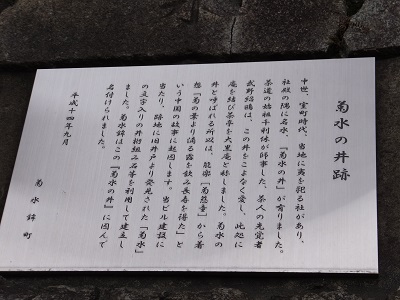 菊水の井跡
中世、室町時代、当地に夷を祀る社があり、
社殿の隅に名水、『菊水の井』が有りました。
茶道の始祖千利休が師事した、茶人の先覚者
武野紹鴎は、この井をこよなく愛し、此処に
庵を結び茶亭を大黒庵と称しました。菊水の
井と呼ばれる所以は、能楽［菊慈童］から着
想『菊の葉より滴る露を飲み長寿を得た』と
いう中国の故事に起因します。当ビル建設に
当たり、跡地に旧井戸より発見された『菊水』
の文字入りの井桁組み石等を利用して建立し
ました。菊水鉾はこの『菊水の井』に因んで
名付けられました。
平成十四年九月
菊水鉾町